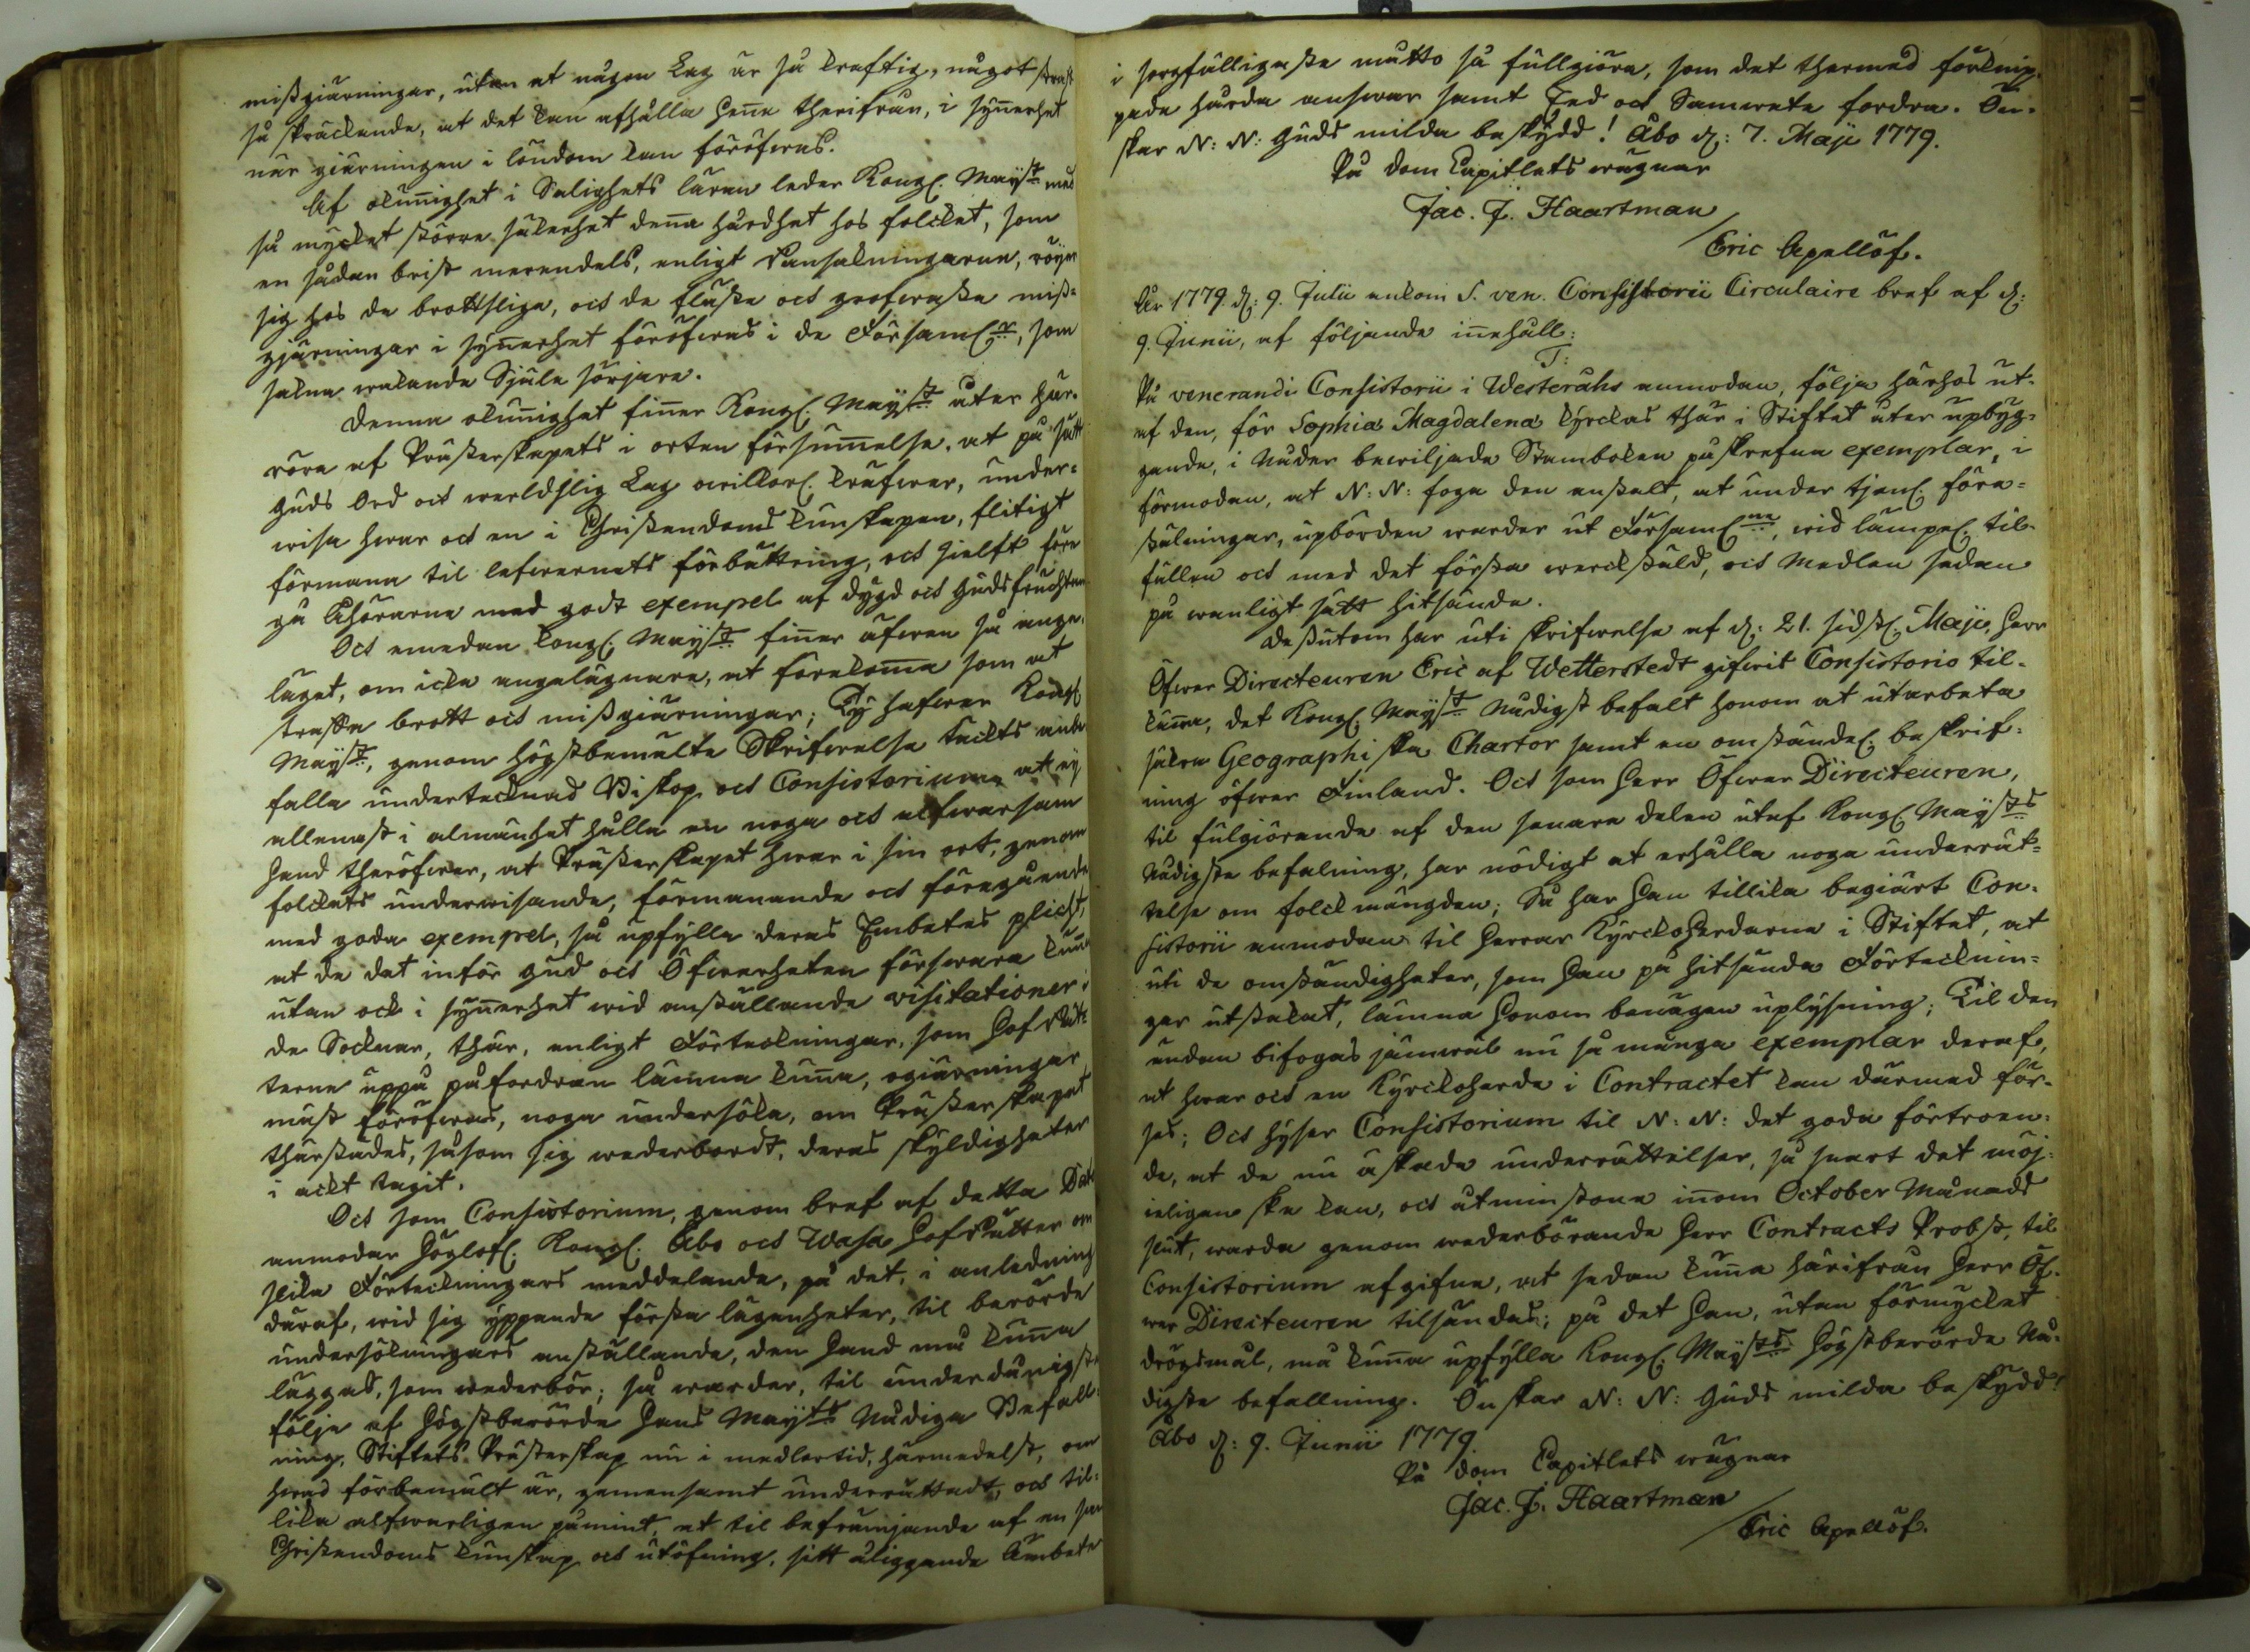 mißgiärningar, utan at någon Lag är så kraftig, något straff
så skräckande, at det kan afhålla henne therifrån, i synnerhet
när giärningen i löndom kan föröfwas.
Af okunnighet i Salighets läran leder Kongl. Mayst med
så mycket större säkerhet denna hårdhet hos folcket, som
en sådan brist merendels, enligt Ransakningarne, röjer
sig hos de brottslige, och de fläste och grofwaste miß-
gjärningar i synnerhet föröfwas i de Församl:r, som
sakna wakande Själa sörjare.
Denna okunnighet finner Kongl. Mayst åter här-
röra af Prästerskapets i orten försummelse, at på sätt
Guds Ord och werldslig Lag owillkorl. kräfwer, under-
wisa hwar och en i Christendoms kunskapen, flitigt
förmana til lefwernets förbättring, och sielft före
gå Åhörarne med godt exempel af dygd och Gudsfruchtan
Och emedan Kongl. Mayst finner äfwen så ange-
läget, om icke angelägnare, at förekomma som at
straffa brott och mißgiärningar; Ty hafwer Kongl
Mayst, genom högstbemälte Skrifwelse täckts anbe
falla undertecknad Biskop och Consistorium, at ej
allenast i almänhet hålla en noga och alfwarsam
hand theröfwer, at Prästerskapet hwar i sin ort, genom
folckets underwisande, förmanande och föregående
med goda exempel, så upfylla deras Embetes plicht,
at de det inför Gud och Öfwerheten förswara kunna
utan ock i synnerhet wid anställande visitationer i
de Socknar, thär, enligt Förteckningar, som HofRät-
terne uppå påfordran lämna kunna, ogiärningar
mäst föröfwas, noga undersöka, om Prästerskapet
thärstädes, såsom sig wederbordt, deras skyldigheter
i ackt tagit.
Och som Consistorium, genom bref af detta Dato
anmodar Höglofl. Kongl. Åbo och Wasa HofRätter om
slika Förteckningars meddelande, på det, i anledning
däraf, wid sig yppande första lägenheter, til berörde
undersökningars anställande, den hand må kunna
läggas, som wederbör; så warder, til underdånigst
följe af högstberörde Hans Maysts Nådiga Befall-
ning, Stiftets Prästerskap nu i medlertid, härmedelst, om
hwad förbemält är, gemensamt underrättadt, och til-
lika alfwarligen påmint, at til befrämjande af en san
Christendoms kunskap och utöfning, sitt åliggande Ämbete
i sorgfälligaste måtto så fullgiöra, som det thermed förknip-
pade hårda answar samt Eed och Samwete fordra. Ön-
skar N: N: Guds milda beskydd! Åbo d: 7. Maji 1779.
På Dom Capitlets wägnar
Jac. J. Haartman
Eric Apellöf.
År 1779 d: 9. Julii ankom S. ven. Consistorii Circulaire bref af d:
9. Junii, af följande innehåll:
T:
På venerandi Consistorii i Westeråhs anmodan, följa härhos ut-
af den, för Sophia Magdalena kyrckas thär i Stiftet åter upbyg-
gande, i Nåder bewiljade Stambokens påskrefne exemplar, i
förmodan, at N: N: foga den anstalt, at under tjenl. före-
stälningar, upbörden warder ut Församl:ne, wid lämpel. til-
fällen och med det första werckstäld, och Medlen sedan
på wanligt sätt hitsände.
Deßutom har uti skrifwelse af d: 21. sidstl. Maji, Herr
Öfwer Directeuren Eric af Wetterstedt gifwit Consistorio til-
känna, det Kongl. Mayst Nådigst befalt honom at utarbeta
säkra Geographiska Chartor samt en omständel. beskrif-
ning öfwer Finland. Och som Herr Öfwer Directeuren,
til fulgiörande af den senare delen utaf Kongl. Maysts
Nådigste befalning, har nödigt at erhålla noga underrät-
telse om folckmängden; Så har Han tillika begiärt Con-
sistorii anmodan til Herrar Kyrckoherdarne i Stiftet, at
uti de omständigheter, som Han på hitsände Förtecknin-
gar utstakat, lämna Honom benägen uplysning; Til den
ändan bifogas jämwäl nu så många exemplar deraf,
at hwar och en Kyrckoherde i Contractet kan därmed för-
ses; Och hyser Consistorium til N: N: det goda förtroen-
de, at de nu äskade underrättelser, så snart det möj-
jeligen ske kan, och åtminstone innom October Månads
slut, warda genom wederbörande Herr Contracts Probst, til
Consistorium afgifne, at sedan kunna härifrån Herr Öf-
wer Directeuren tilsändas; på det Han, utan förmycket
drögsmål, må kunna upfylla Kongl. Maysts högstberörde Nå-
digste befallning. Önskar N: N: Guds milda beskydd!
Åbo d: 9. Junii 1779.
På Dom Capitlets wägnar
Jac. J. Haartman
Eric Apellöf.